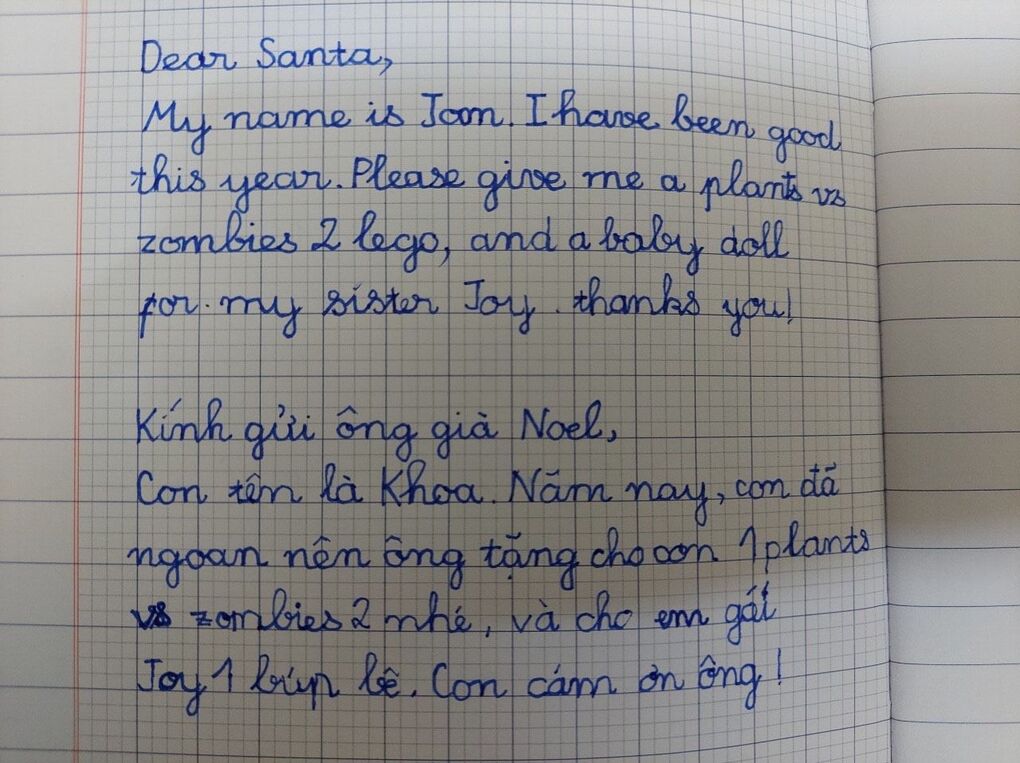 Dear Santa,
My name is Joon. I have been good
this year. Please give me a plants vs
zombies 2 lego, and a baby doll
for my sister Joy. thanks you!
Kính gửi ông già Noel,
Con tên là Khoa. Năm nay, con đã
ngoan nên ông tặng cho con 1 plants
vs zombies 2 nhé, và cho em gái
Joy 1 búp bê. Con cám ơn ông!